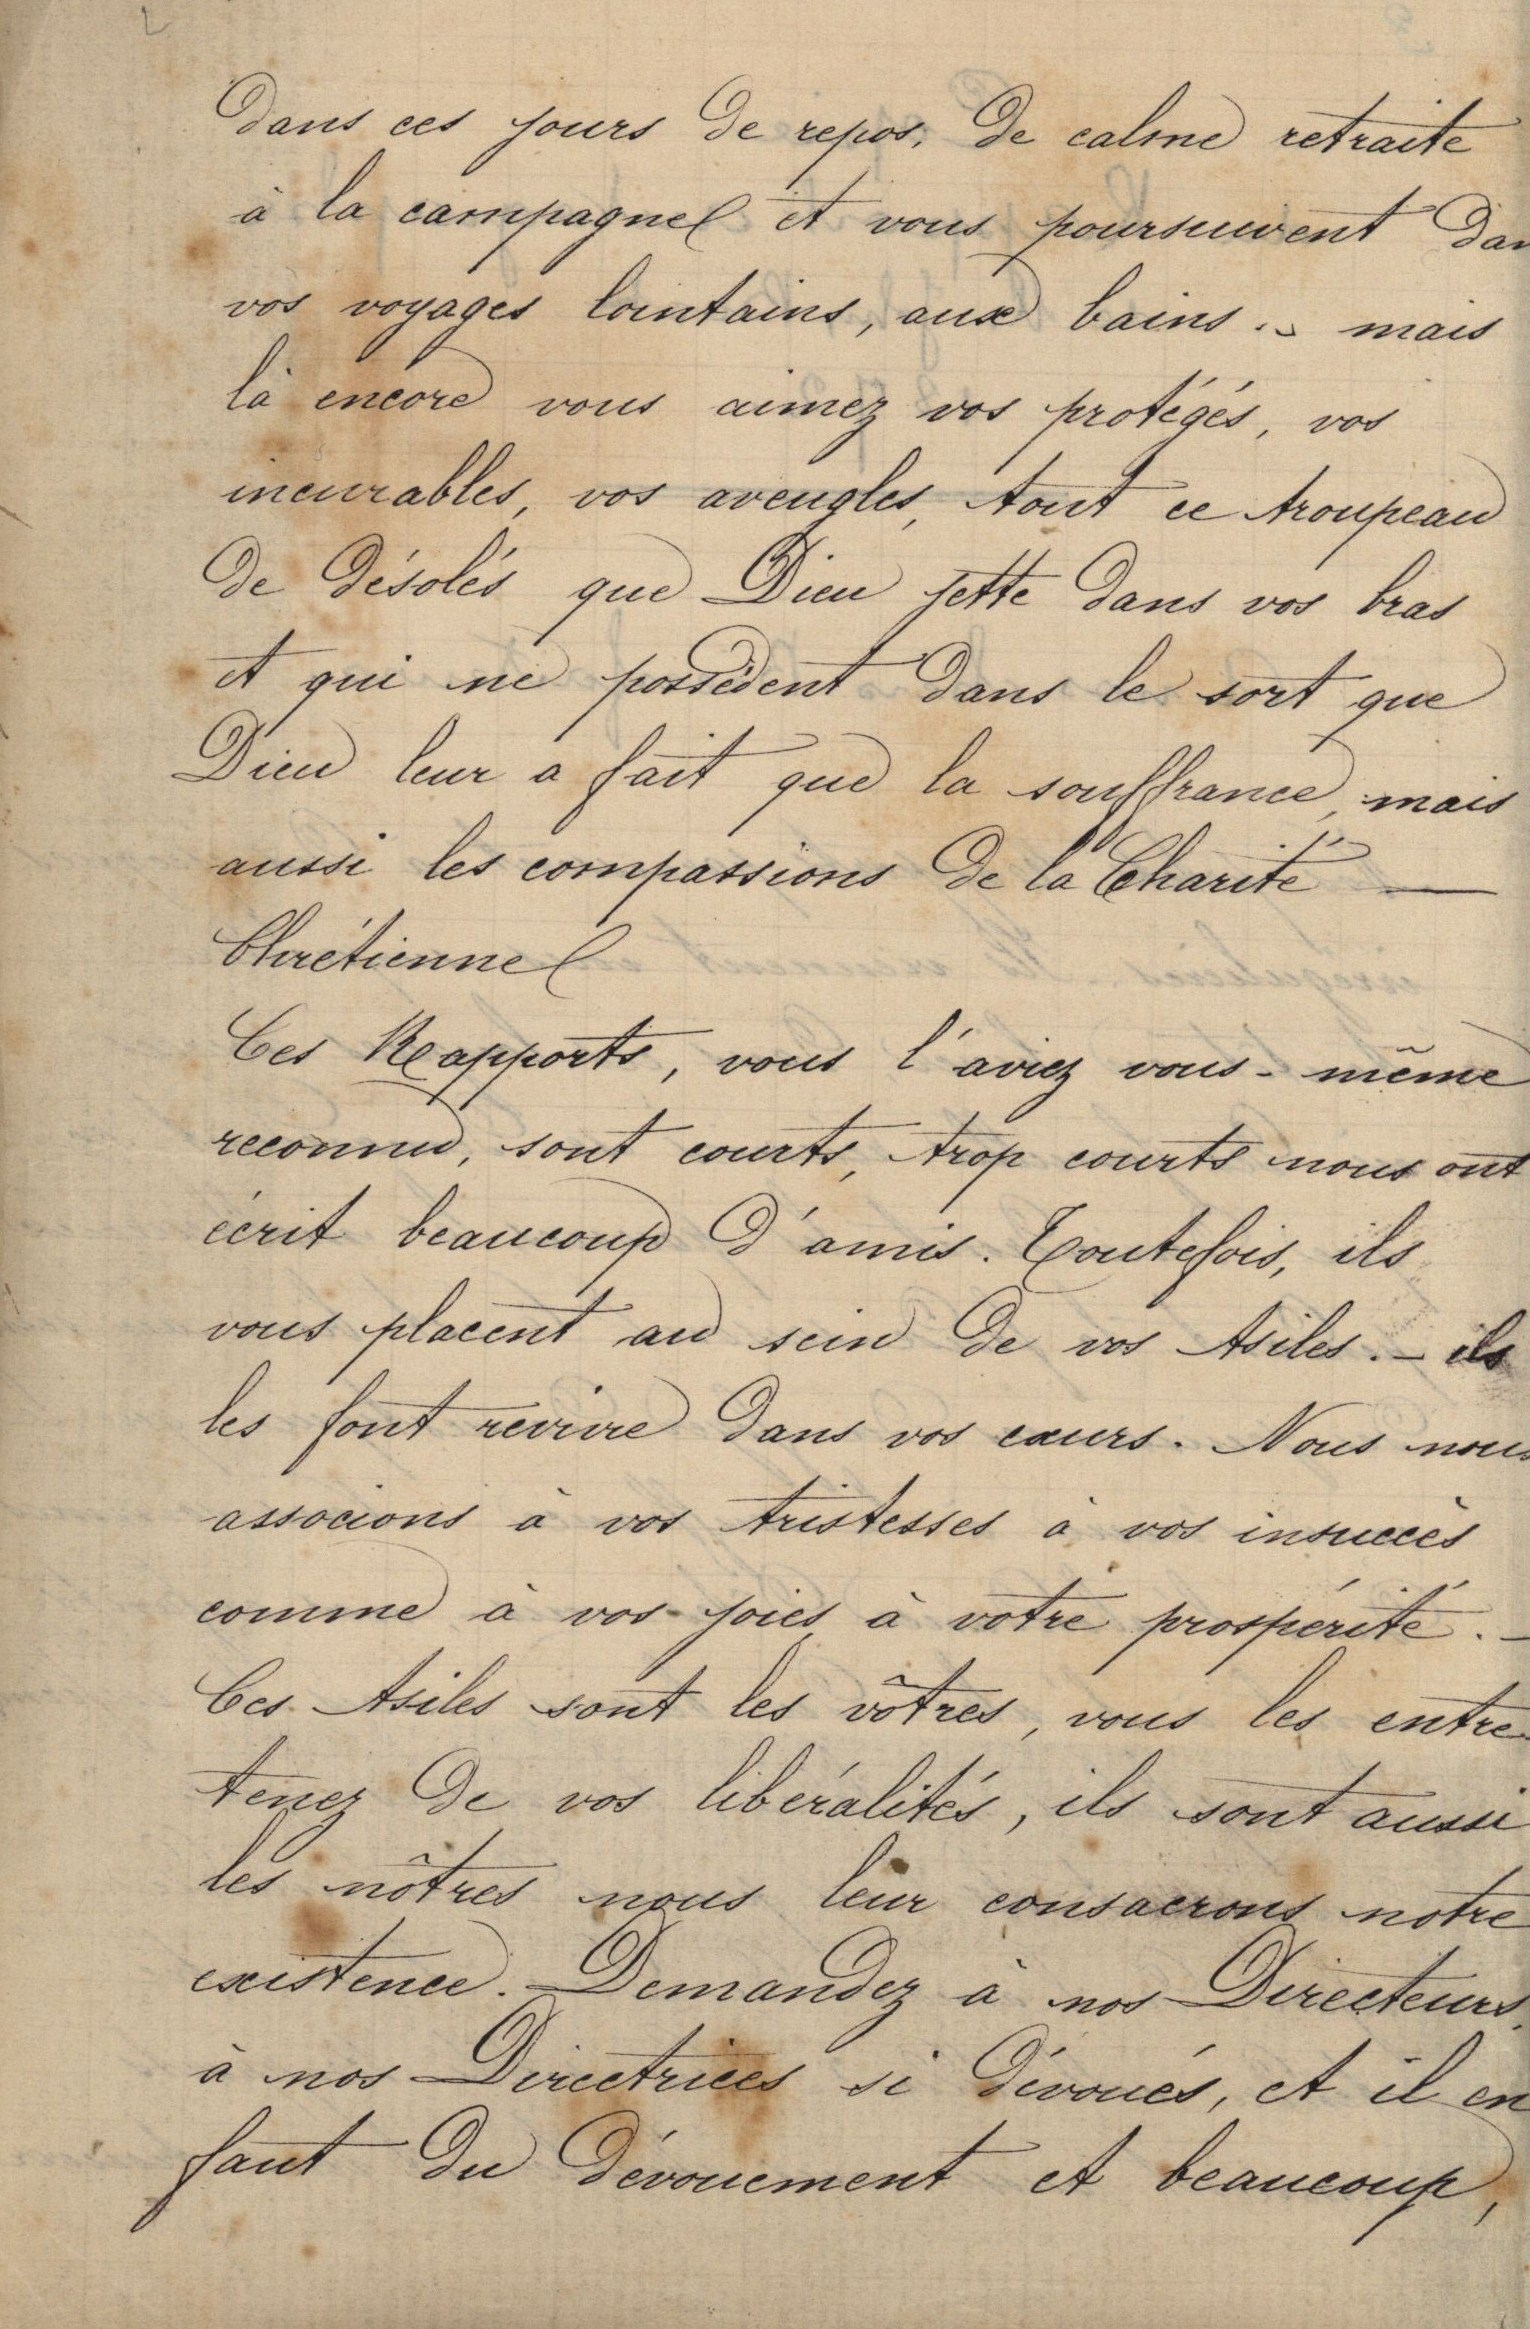 dans ces jours de repos, de calme retraite
à la campagne et vous poursuivent dan
vos voyages lointains, aux bains .- mais
là encore vous aimez vos protégés, vos
incurables, vos aveugles, tout ce troupeau
de désolés que Dieu jette dans vos bras
et qui ne possèdent dans le sort que
Dieu leur a fait que la souffrance, mais
aussi les compassions de la Charité —
Chrétienne
Ces Rapports, vous l'aviez vous-même
reconnu, sont courts, trop courts nous ont
écrit beaucoup d'amis. Toutefois, ils
vous placent au sein de vos Asiles. - ils
les font revivre dans vos cœurs. Nous nous
associons à vos tristesses à vos insuccès
comme à vos joies à votre prospérité. -
Ces Asiles sont les vôtres, vous les entre
tenez de vos libéralités, ils sont aussi
les nôtres nous leur consacrons notre
existence. Demandez à nos Directeurs,
à nos Directrices si dévoués, et il en
faut du dévouement et beaucoup,